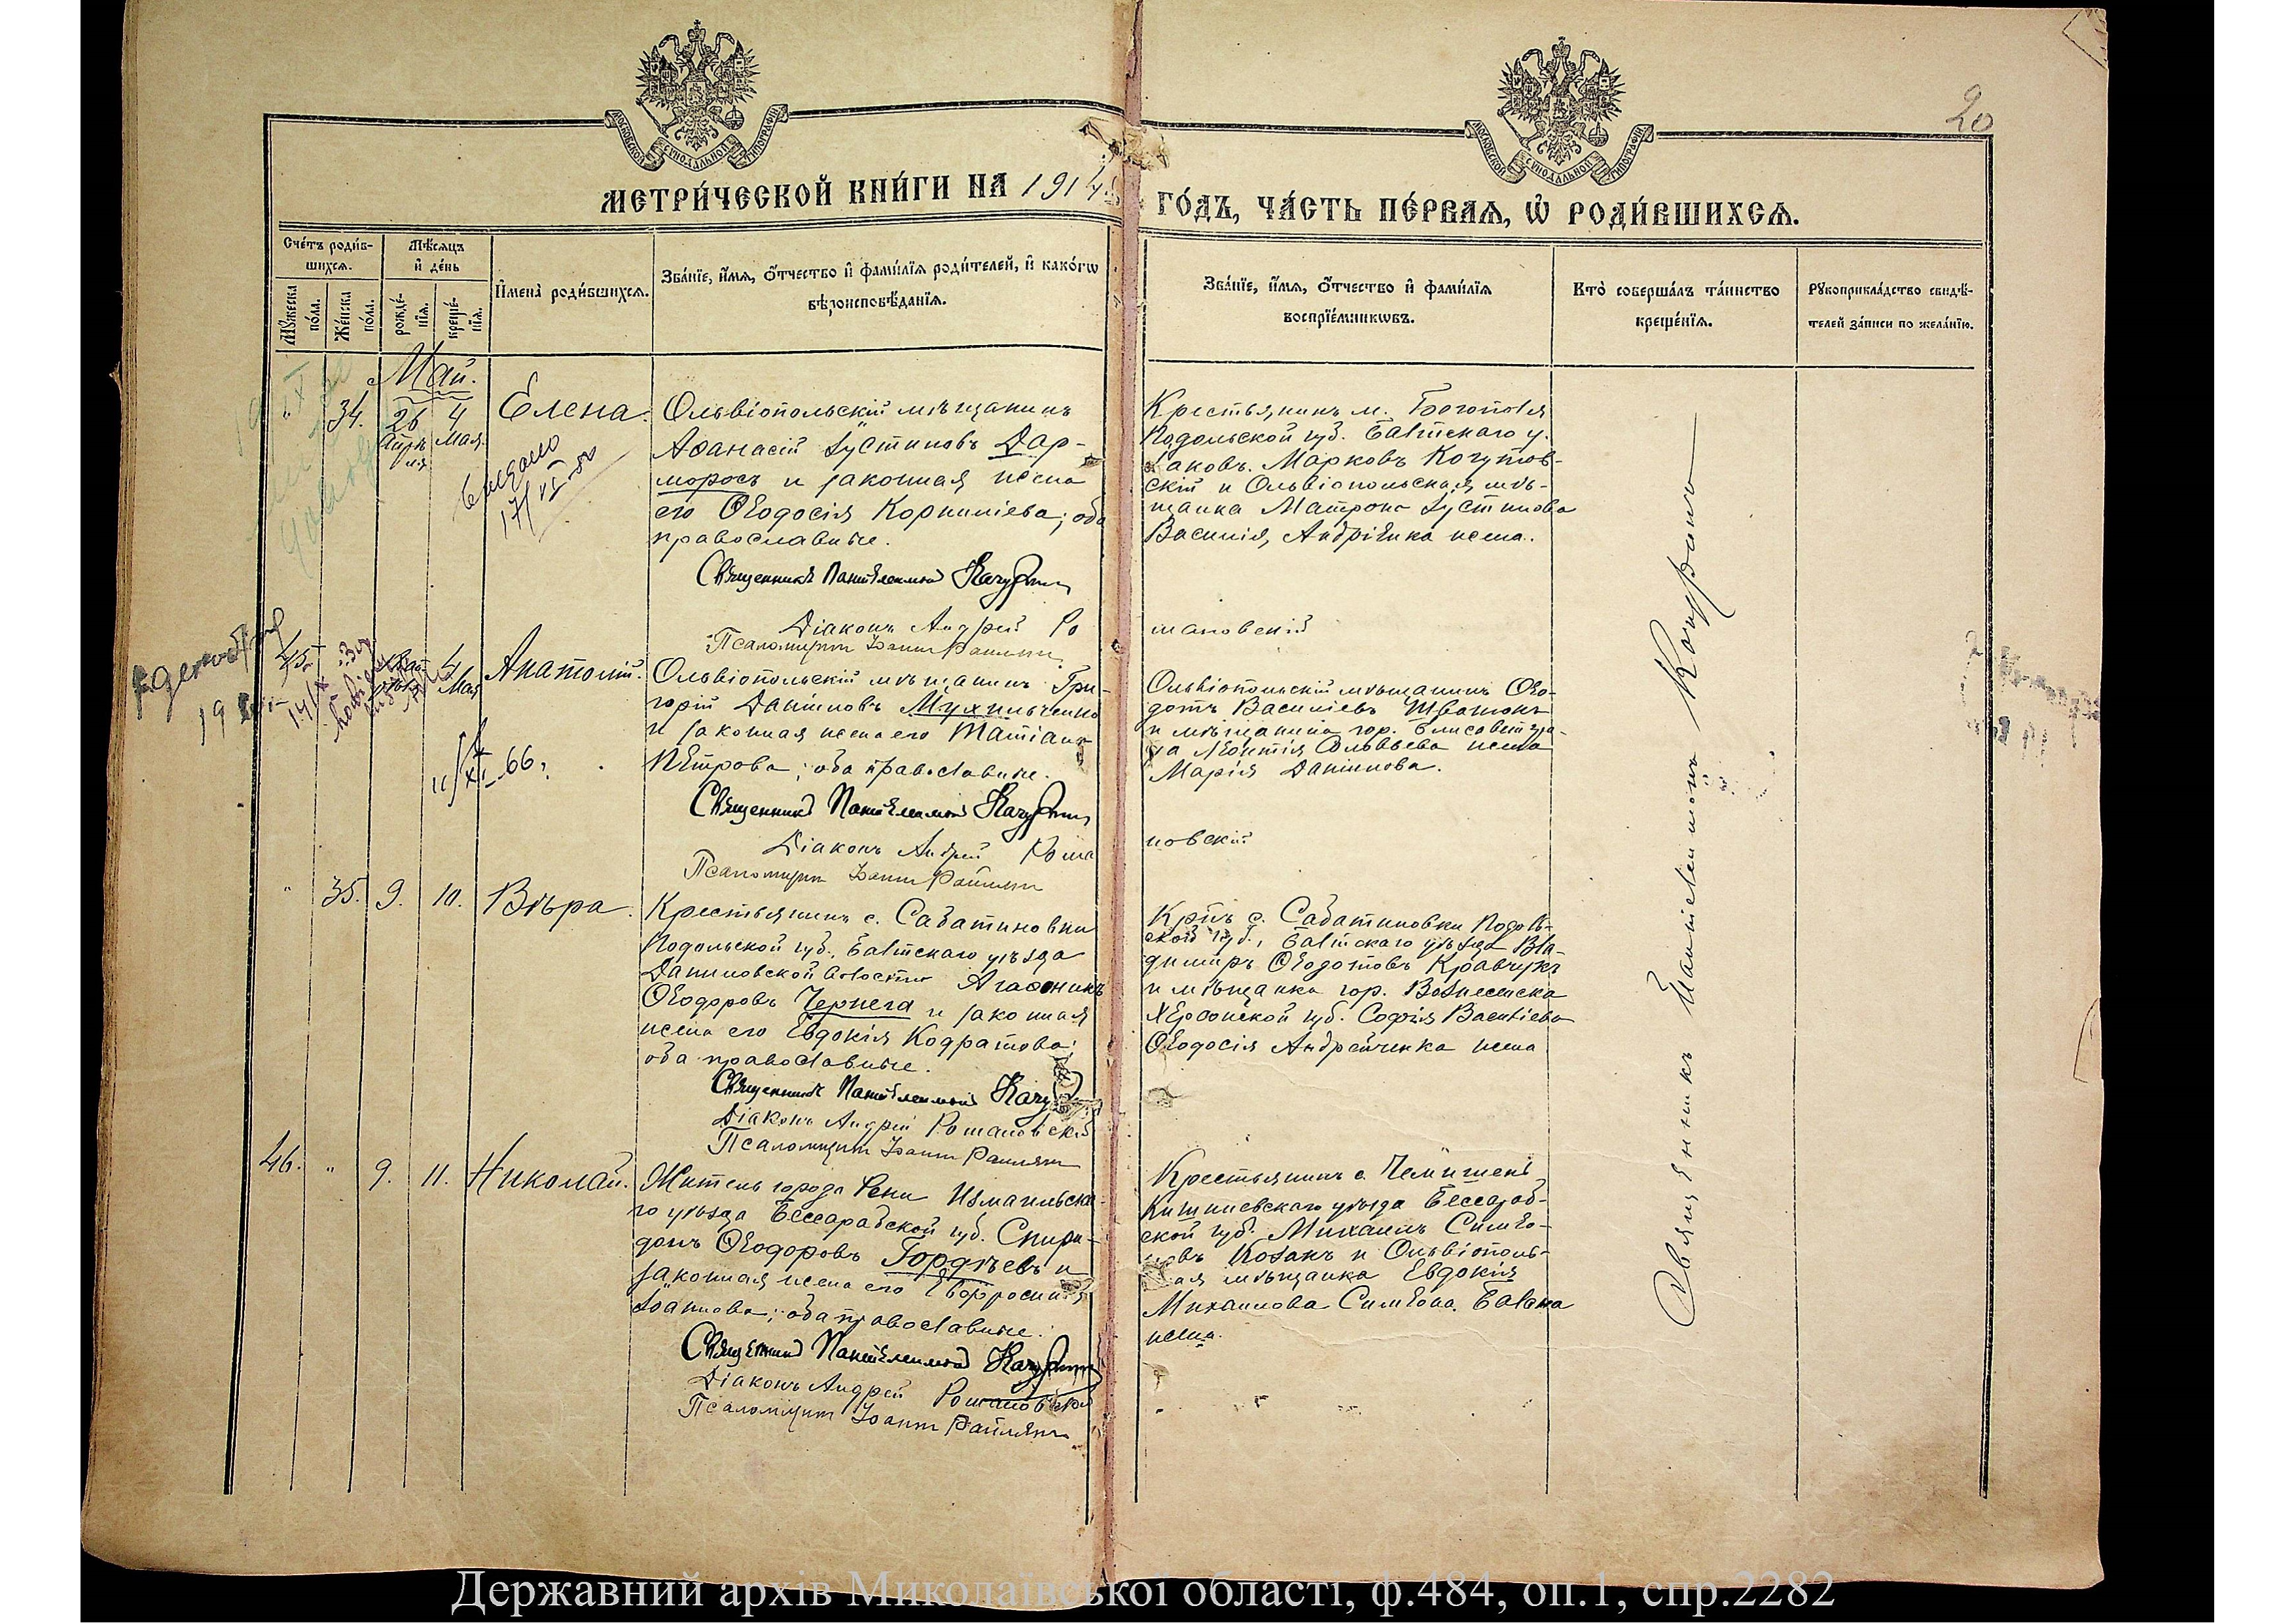 20
МЕТРИ́ЧЕСКОЙ КНИ́ГИ НА 1914
ГО́ДЪ, ЧА́СТЬ ПЕ́РВАЯ, Ѡ РОДИ́ВШИХСЯ.
Сче́тъ роди́в-
шихся.
Мѣ́сяцъ
и де́нь
Мужеска по́ла.
Же́нска по́ла.
рожде́-
нїя.
креще́-
нїя.
Имена̀ роди́вшихся.
Зва́нїе, и́мя, о́тчество и фами́лїя роди́телей, и како́гѡ
вѣроисповѣ́данїя.
Зва́нїе, и́мя, о́тчество и фами́лїя
воспрїе́мникѡвъ.
Кто̀ соверша́лъ та́инство
креще́нїя.
Рукоприкла́дство свидѣ́-
телей за́писи по жела́нїю.
Май.
" 34. 26 Апрѣля 4 Мая. Елена.
Ольвіопольскій мѣщанинъ
Аѳанасій Іустиновъ Дар-
моросъ и законная жена
его Ѳеодосія Корниліева; оба
православные.
Священникъ Пантелеимон
Діаконъ Андрей Романовскій
Псаломщикъ Іоанн
Крестьянинъ м. Богополя
Подольской губ. Балтскаго у.
Іаковъ Марковъ Когутов-
скій и Ольвіопольская мѣ-
щанка Матрона Іустинова
Василія Андріенка жена.
45 4 Мая Анатолій.
Ольвіопольскій мѣщанинъ Гри-
горій Даніиловъ Мухильченко
и законная жена его Татіана
Петрова; оба православные.
Священникъ Пантелеимон
Діаконъ Андрей Романовскій
Псаломщикъ Іоанн
Ольвіопольскій мѣщанинъ Ѳео-
дотъ Василіевъ
и мѣщанина гор. Елисаветгра-
да Леонтія Соловьева жена
Марія Даніилова.
XI 66
" 35. 9. 10. Вѣра.
Крестьянинъ с. Сабатиновки
Подольской губ., Балтскаго уѣзда
Даниловской волости Агаѳоникъ
Ѳеодоровъ Чернега и законная
жена его Евдокія Кодратова;
оба православные.
Священникъ Пантелеимон
Діаконъ Андрей Романовскій
Псаломщикъ Іоанн
Крнъ с. Сабатиновки Подоль-
ской губ., Балтскаго уѣзда Вла-
димиръ Ѳеодотовъ Кравчукъ
и мѣщанка гор. Вознесенска
Херсонской губ. Софія Василіева
Ѳеодосія Андрейченка жена
46. " 9. 11. Николай.
Житель города Рени Измаильска-
го уѣзда Бессарабской губ. Спири-
донъ Ѳеодоровъ Гордѣевъ и
законная жена его Евфросинія
Іоаннова; оба православные.
Священникъ Пантелеимон
Діаконъ Андрей Романовскій
Псаломщикъ Іоанн
Крестьянинъ с.
Кишиневскаго уѣзда Бессараб-
ской губ. Михаилъ Симео-
новъ Козакъ и Ольвіополь-
ская мѣщанка Евдокія
Михаилова Симеона
жена.
Священникъ Пантелеимонъ
Державний архів Миколаївської області, ф.484, оп.1, спр.2282